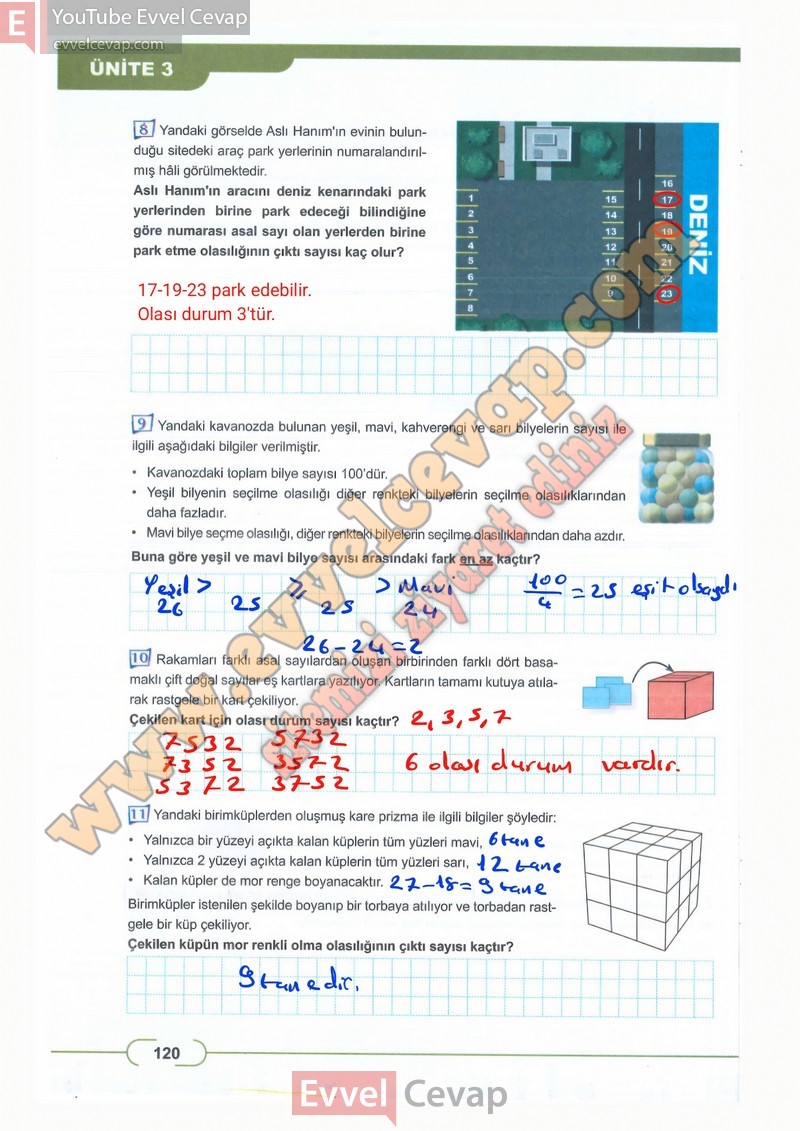 YouTube Evvel Cevap
evvelcevap.com
ÜNİTE 3
8 Yandaki görselde Aslı Hanım'ın evinin bulun-
duğu sitedeki araç park yerlerinin numaralandırıl-
mış hâli görülmektedir.
Aslı Hanım'ın aracını deniz kenarındaki park
yerlerinden birine park edeceği bilindiğine
göre numarası asal sayı olan yerlerden birine
park etme olasılığının çıktı sayısı kaç olur?
1
2
3
4
5
6
7
8
15
14
13
12
11
10
9
16
17
18
19
20
21
22
23
DENİZ
17-19-23 park edebilir.
Olası durum 3'tür.
9 Yandaki kavanozda bulunan yeşil, mavi, kahverengi ve sarı bilyelerin sayısı ile
ilgili aşağıdaki bilgiler verilmiştir.
• Kavanozdaki toplam bilye sayısı 100'dür.
• Yeşil bilyenin seçilme olasılığı diğer renkteki bilyelerin seçilme olasılıklarından
daha fazladır.
• Mavi bilye seçme olasılığı, diğer renkteki bilyelerin seçilme olasılıklarından daha azdır.
Buna göre yeşil ve mavi bilye sayısı arasındaki fark en az kaçtır?
Yeşil > ≥ > Mavi 100/4 = 25 eşit olsaydı
26 25 25 24
26-24=2
10 Rakamları farklı asal sayılardan oluşan birbirinden farklı dört basa-
maklı çift doğal sayılar eş kartlara yazılıyor. Kartların tamamı kutuya atıla-
rak rastgele bir kart çekiliyor.
Çekilen kart için olası durum sayısı kaçtır? 2,3,5,7
7532 5732
7352 3572 6 olası durum vardır.
5372 3752
11 Yandaki birimküplerden oluşmuş kare prizma ile ilgili bilgiler şöyledir:
• Yalnızca bir yüzeyi açıkta kalan küplerin tüm yüzleri mavi, 6 tane
• Yalnızca 2 yüzeyi açıkta kalan küplerin tüm yüzleri sarı, 12 tane
• Kalan küpler de mor renge boyanacaktır. 27-18=9 tane
Birimküpler istenilen şekilde boyanıp bir torbaya atılıyor ve torbadan rast-
gele bir küp çekiliyor.
Çekilen küpün mor renkli olma olasılığının çıktı sayısı kaçtır?
9 tanedir.
120
www.evvelcevap.com
sitemizi ziyaret ediniz
Evvel Cevap